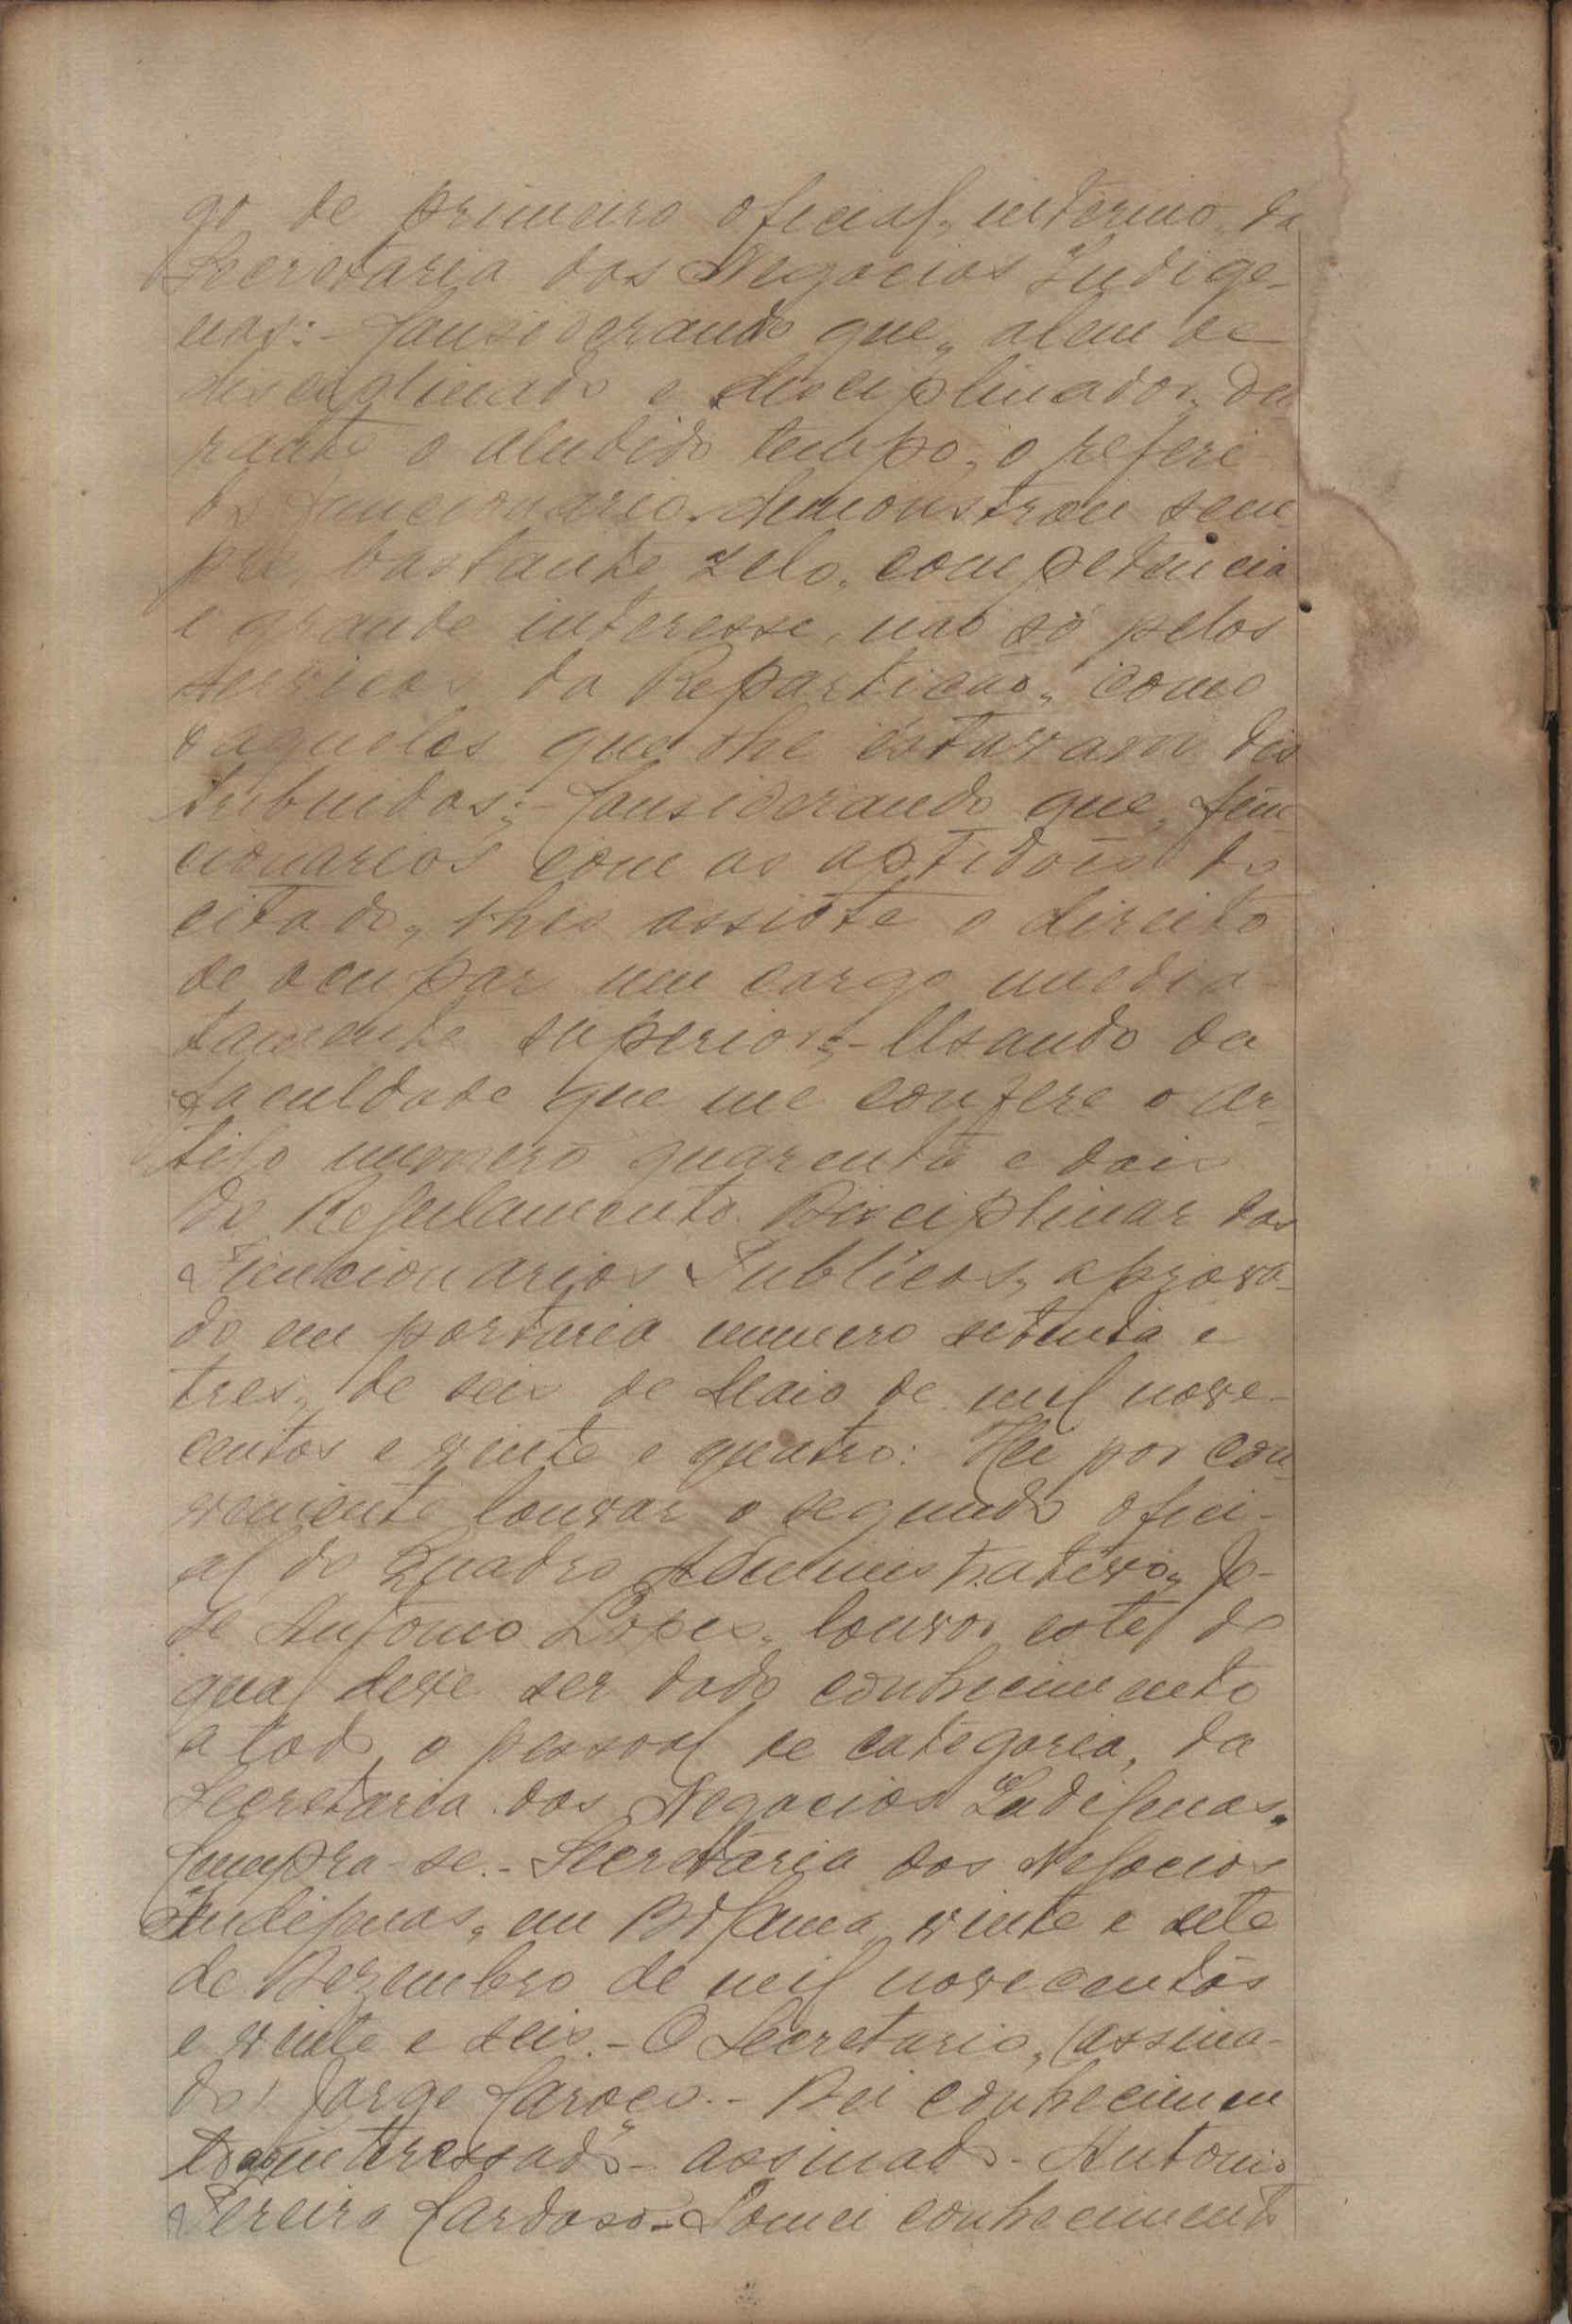 go de primeiro oficial, interino, da
Secretaria dos Negocios Indige-
nas:- Considerando que, alem de
disciplinado e disciplinador, du
rante o aludido tempo, o referi-
do funcionario demonstrou sem
pre, bastante zelo, competencia
e grande interesse, não só pelos
serviços da Repartição, como
aqueles que lhe estavam dis
tribuidos;- Considerando que, fun
cionarios com as aptidões do
citado, lhes assiste o direito
de ocupar um cargo imedia
tamente superior;- Usando da
faculdade que me confere o ar-
tigo numero quarenta e dois
do Regulamento Disciplinar dos
Funcionarios Publicos, aprova-
do em portaria numero setenta e
tres, de seis de Maio de mil nove-
centos e vinte e quatro: Hei por con-
veniente louvar o segundo ofici-
al do Quadro Administrativo, Jo-
sé Antonio Lopes, louvor este, do
qual deve ser dado conhecimento
a todo o pessoal de categoria, da
Secretaria dos Negocios Indigenas.
Cumpra-se.- Secretaria dos Negocios
Indigenas, em Bolama, vinte e sete
de Dezembro de mil novecentos
e vinte e seis.- O Secretario, (assina-
do) Jorge Caroço.- Dei conhecimen
to ao interessado- assinado- Antonio
Pereira Cardoso- Tomei conhecimento